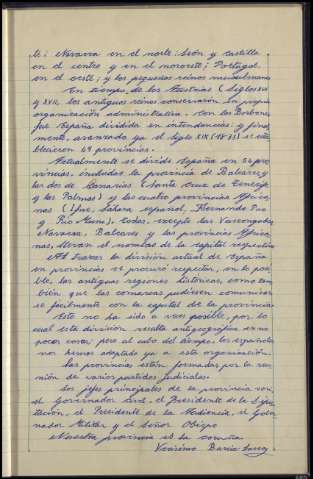 te; Navarra en el norte; León y Castilla
en el centro y en el noroeste; Portugal
en el oeste; y los pequeños reinos musulmanes
En tiempo de los Austrias (siglos XVI
y XVII, los antiguos reinos conservaron su propia
organización administrativa. Con los Borbones
fue España dividida en intendencias; y final
mente, avanzado ya el siglo XIX (1833) se esta
blecieron 49 provincias.
Actualmente se divide España en 54 pro
vincias, incluidas la provincia de Baleares y
las dos de Canarias (Santa Cruz de Tenerife
y Las Palmas) y las cuatro provincias Africa
nas (Ifni, Sahara español, Fernando Poo
y Río Muni), todas, excepto las Vascongadas,
Navarra, Baleares y las provincias Africa
nas, llevan el nombre de la capital respectiva
Al trazar la división actual de España
en provincias se procuró respetar, en lo posi
ble, las antiguas regiones históricas, como tam
bién que las comarcas pudiesen comunicarse
fácilmente con la capital de la provincia
Esto no ha sido a veces posible, por lo
cual esta división resulta antigeográfica en no
pocas cosas; pero al cabo del tiempo, los españoles
nos hemos adaptado ya a esta organización.
Las provincias están formadas por la reu
nión de varios partidos judiciales.
Los jefes principales de la provincia son:
el Gobernador Civil, el Presidente de la Dipu
tación, el Presidente de la Audiencia, el Gober
nador Militar y el Señor Obispo
Nuestra provincia es La Coruña